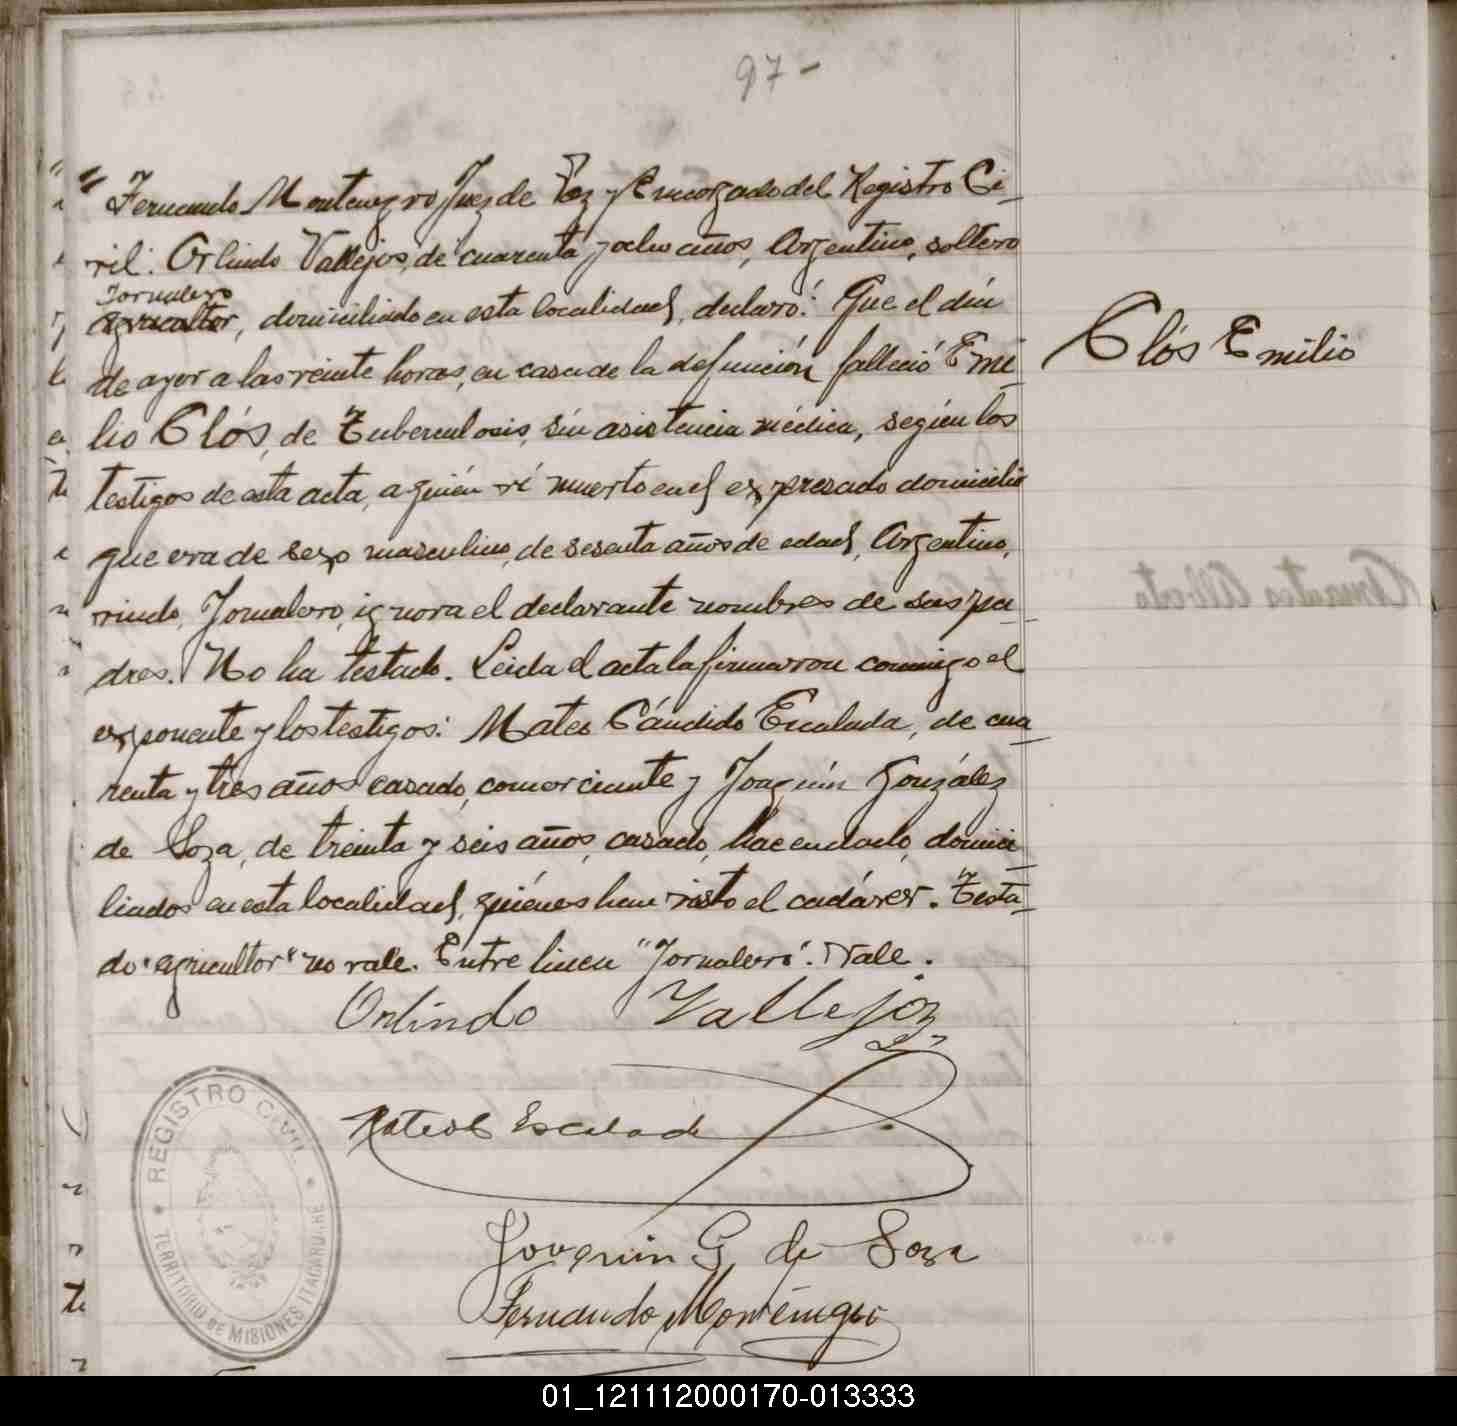 97-
Fernando Montenegro Juez de Paz y Encargado del Registro Ci-
vil: Orlindo Vallejos, de cuarenta y ocho años, Argentino, soltero
Jornalero
agricultor, domiciliado en esta localidad, declaró: Que el día
de ayer a las veinte horas, en casa de la defunción falleció Emi-
Clós Emilio
lio Clós, de Tuberculosis, sin asistencia médica, según los
testigos de esta acta, a quién ví muerto en el expresado domicilio
que era de sexo masculino, de sesenta años de edad, Argentino,
viudo, Jornalero, ignora el declarante nombres de sus pa-
dres. No ha testado. Leida el acta la firmaron conmigo el
exponente y los testigos: Mateo Cándido Escalada, de cua-
renta y tres años casado, comerciante y Joaquín González
de Soza, de treinta y seis años, casado, hacendado, domici-
liados en esta localidad, quiénes han visto el cadáver. Testa-
do "agricultor" no vale. Entre linea "Jornalero". Vale.
Orlindo Vallejos
Mateo C Escalada
Joaquin G. de Soza
Fernando Montenegro
REGISTRO CIVIL
TERRITORIO DE MISIONES ITACARUARÉ
01_121112000170-013333